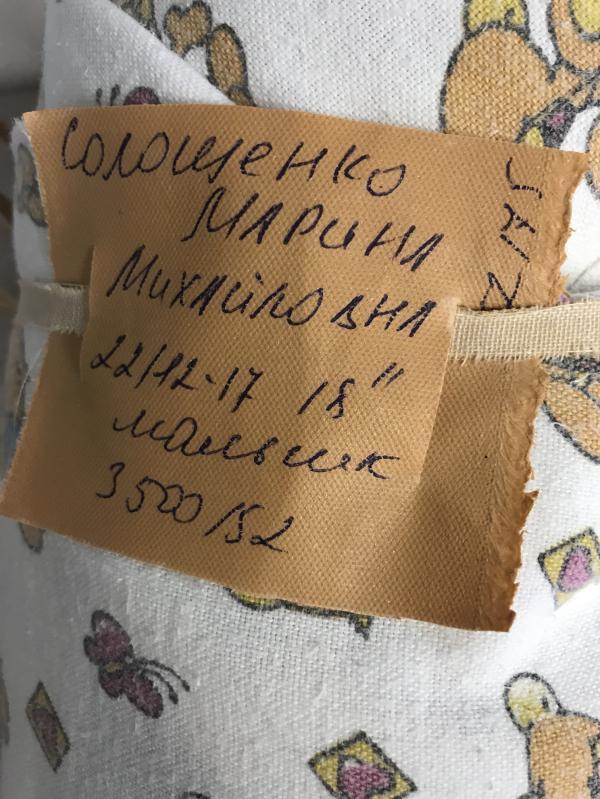 Солощенко
Марина
Михайловна
22/12-17 18"
мальчик
3500/52